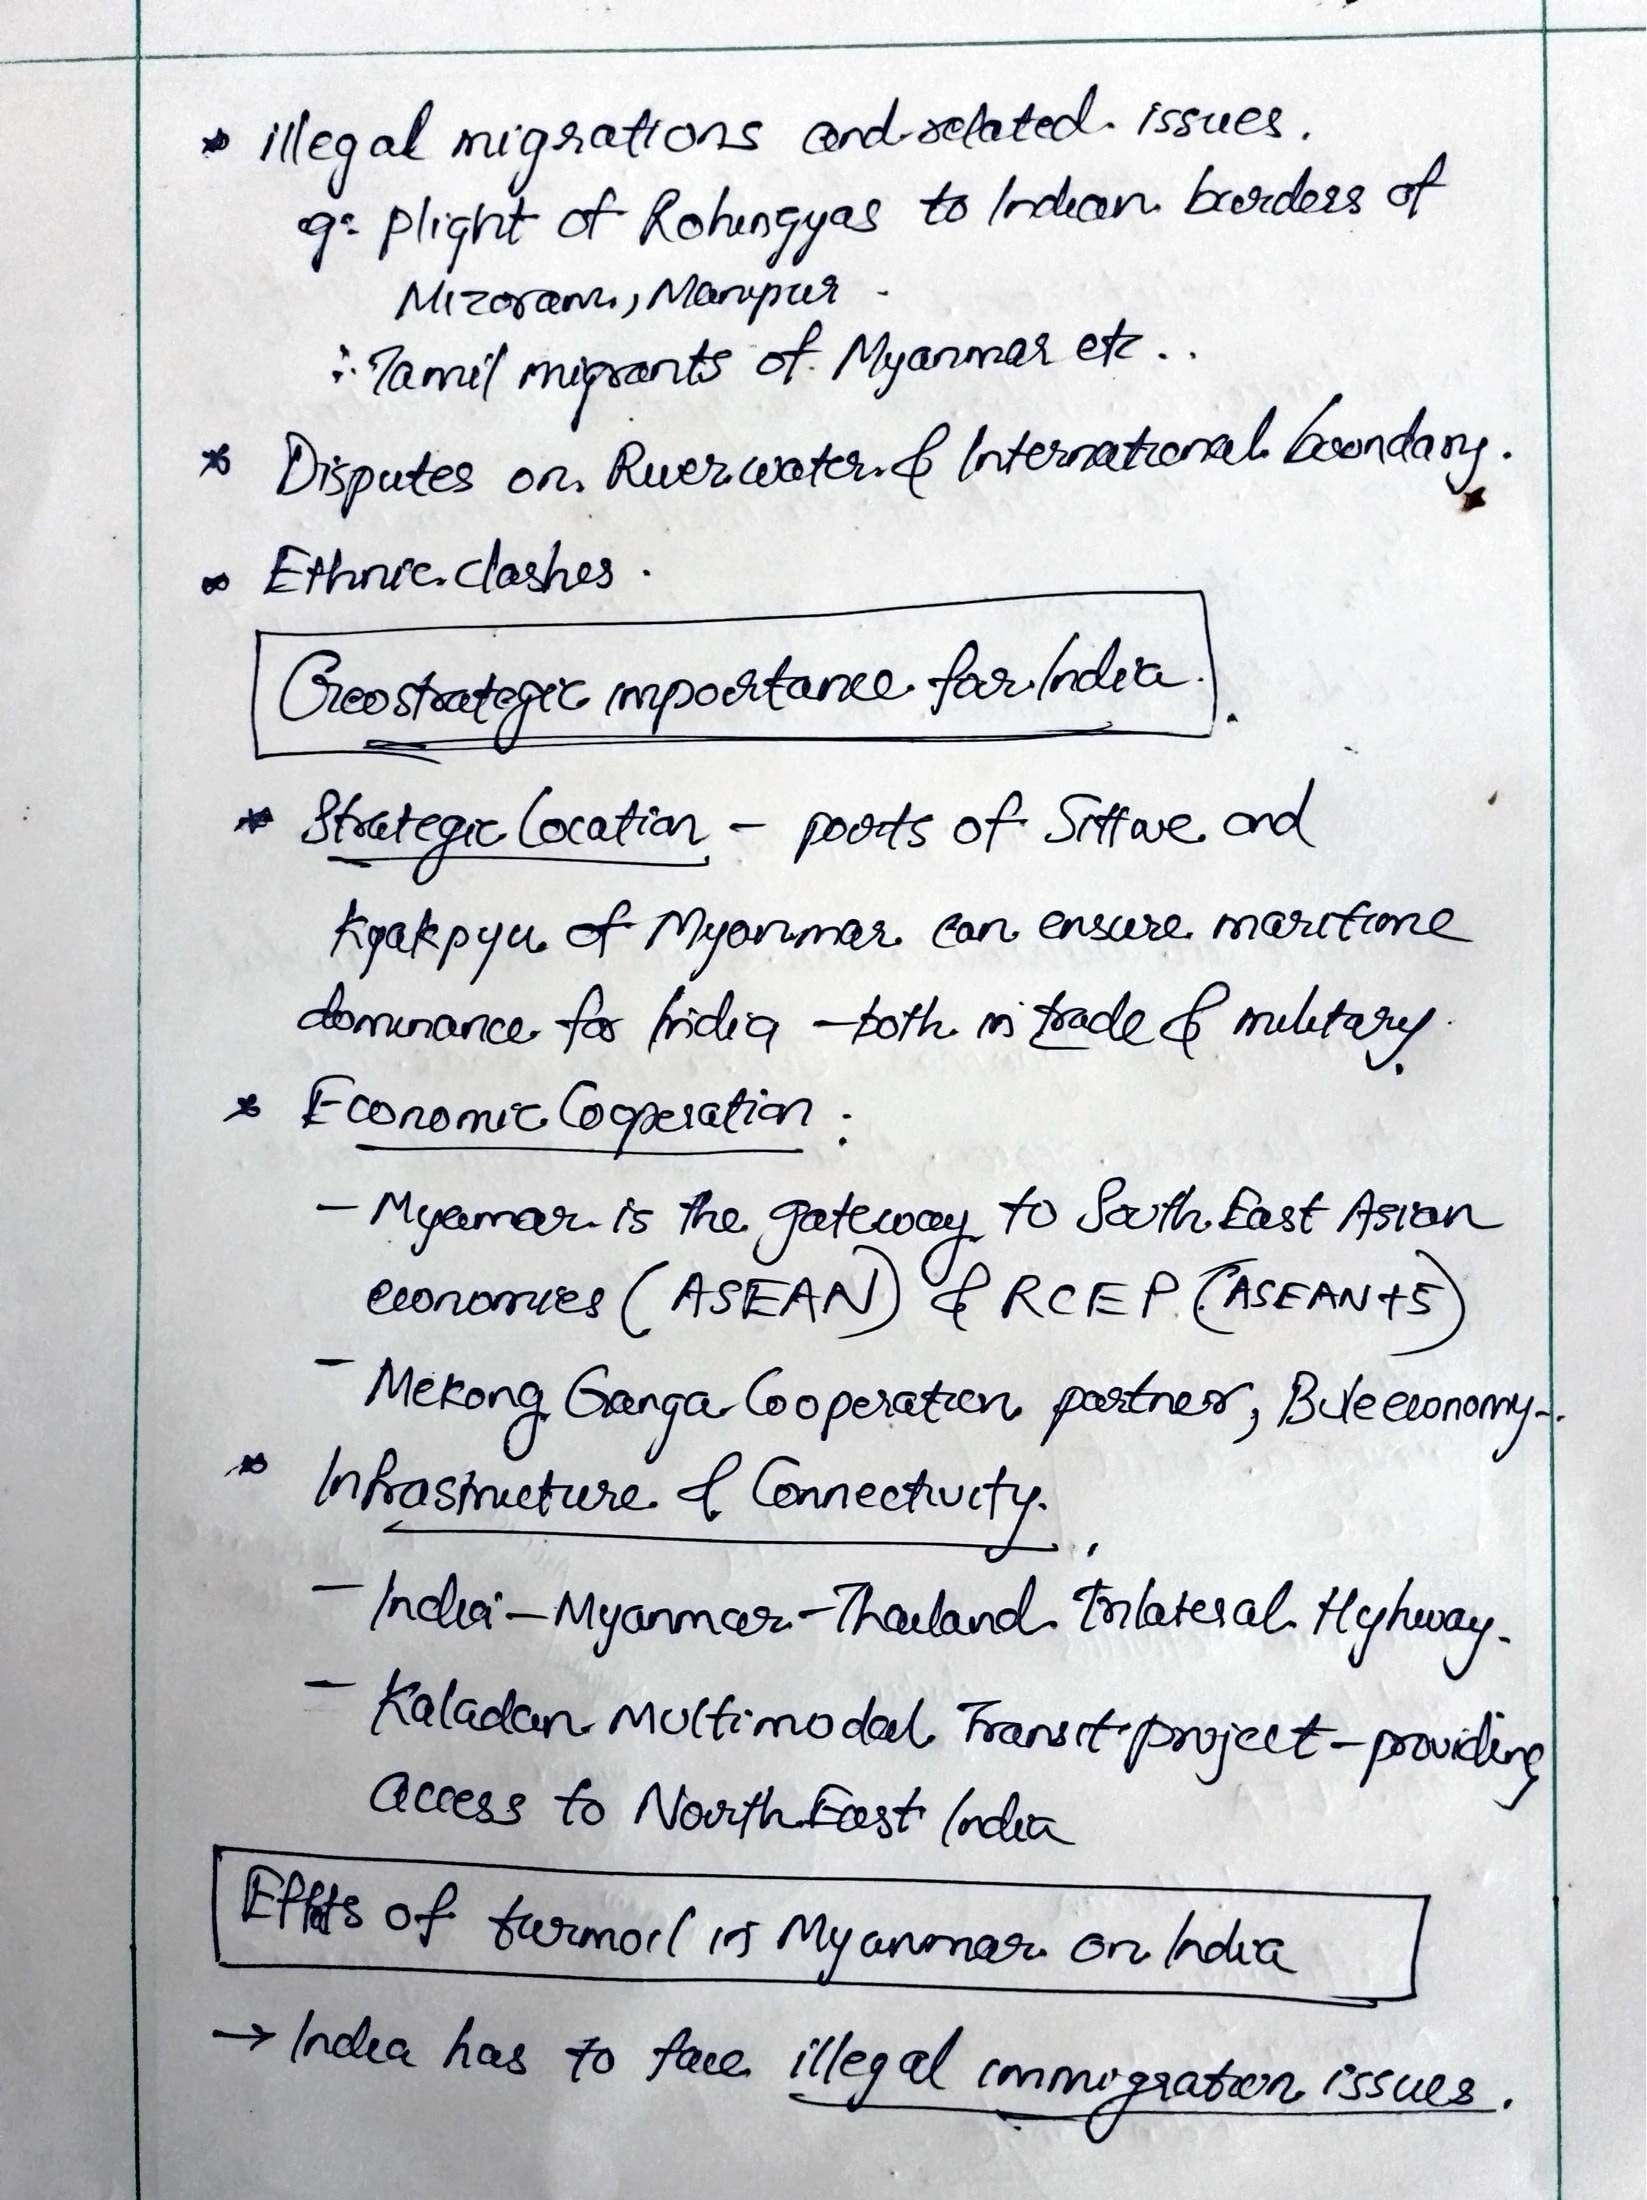 * illegal migrations and related issues.
eg: plight of Rohingyas to Indian borders of
Mizoram, Manipur.
∴ Tamil migrants of Myanmar etc..
* Disputes on River water & International boundary.
* Ethnic clashes.
Geostrategic importance for India.
* Strategic Location - ports of Sittwe and
Kyakpyu of Myanmar can ensure maritime
dominance for India - both in trade & military.
* Economic Cooperation:
- Myamar is the gateway to South East Asian
economies (ASEAN) & RCEP (ASEAN+5)
- Mekong Ganga Cooperation partner, Blue economy..
* Infrastructure & Connectivity.
- India-Myanmar-Thailand Trilateral Highway.
- Kaladan Multimodal Transit project - providing
access to North East India
Effects of turmoil in Myanmar on India
→ India has to face illegal immigration issues.